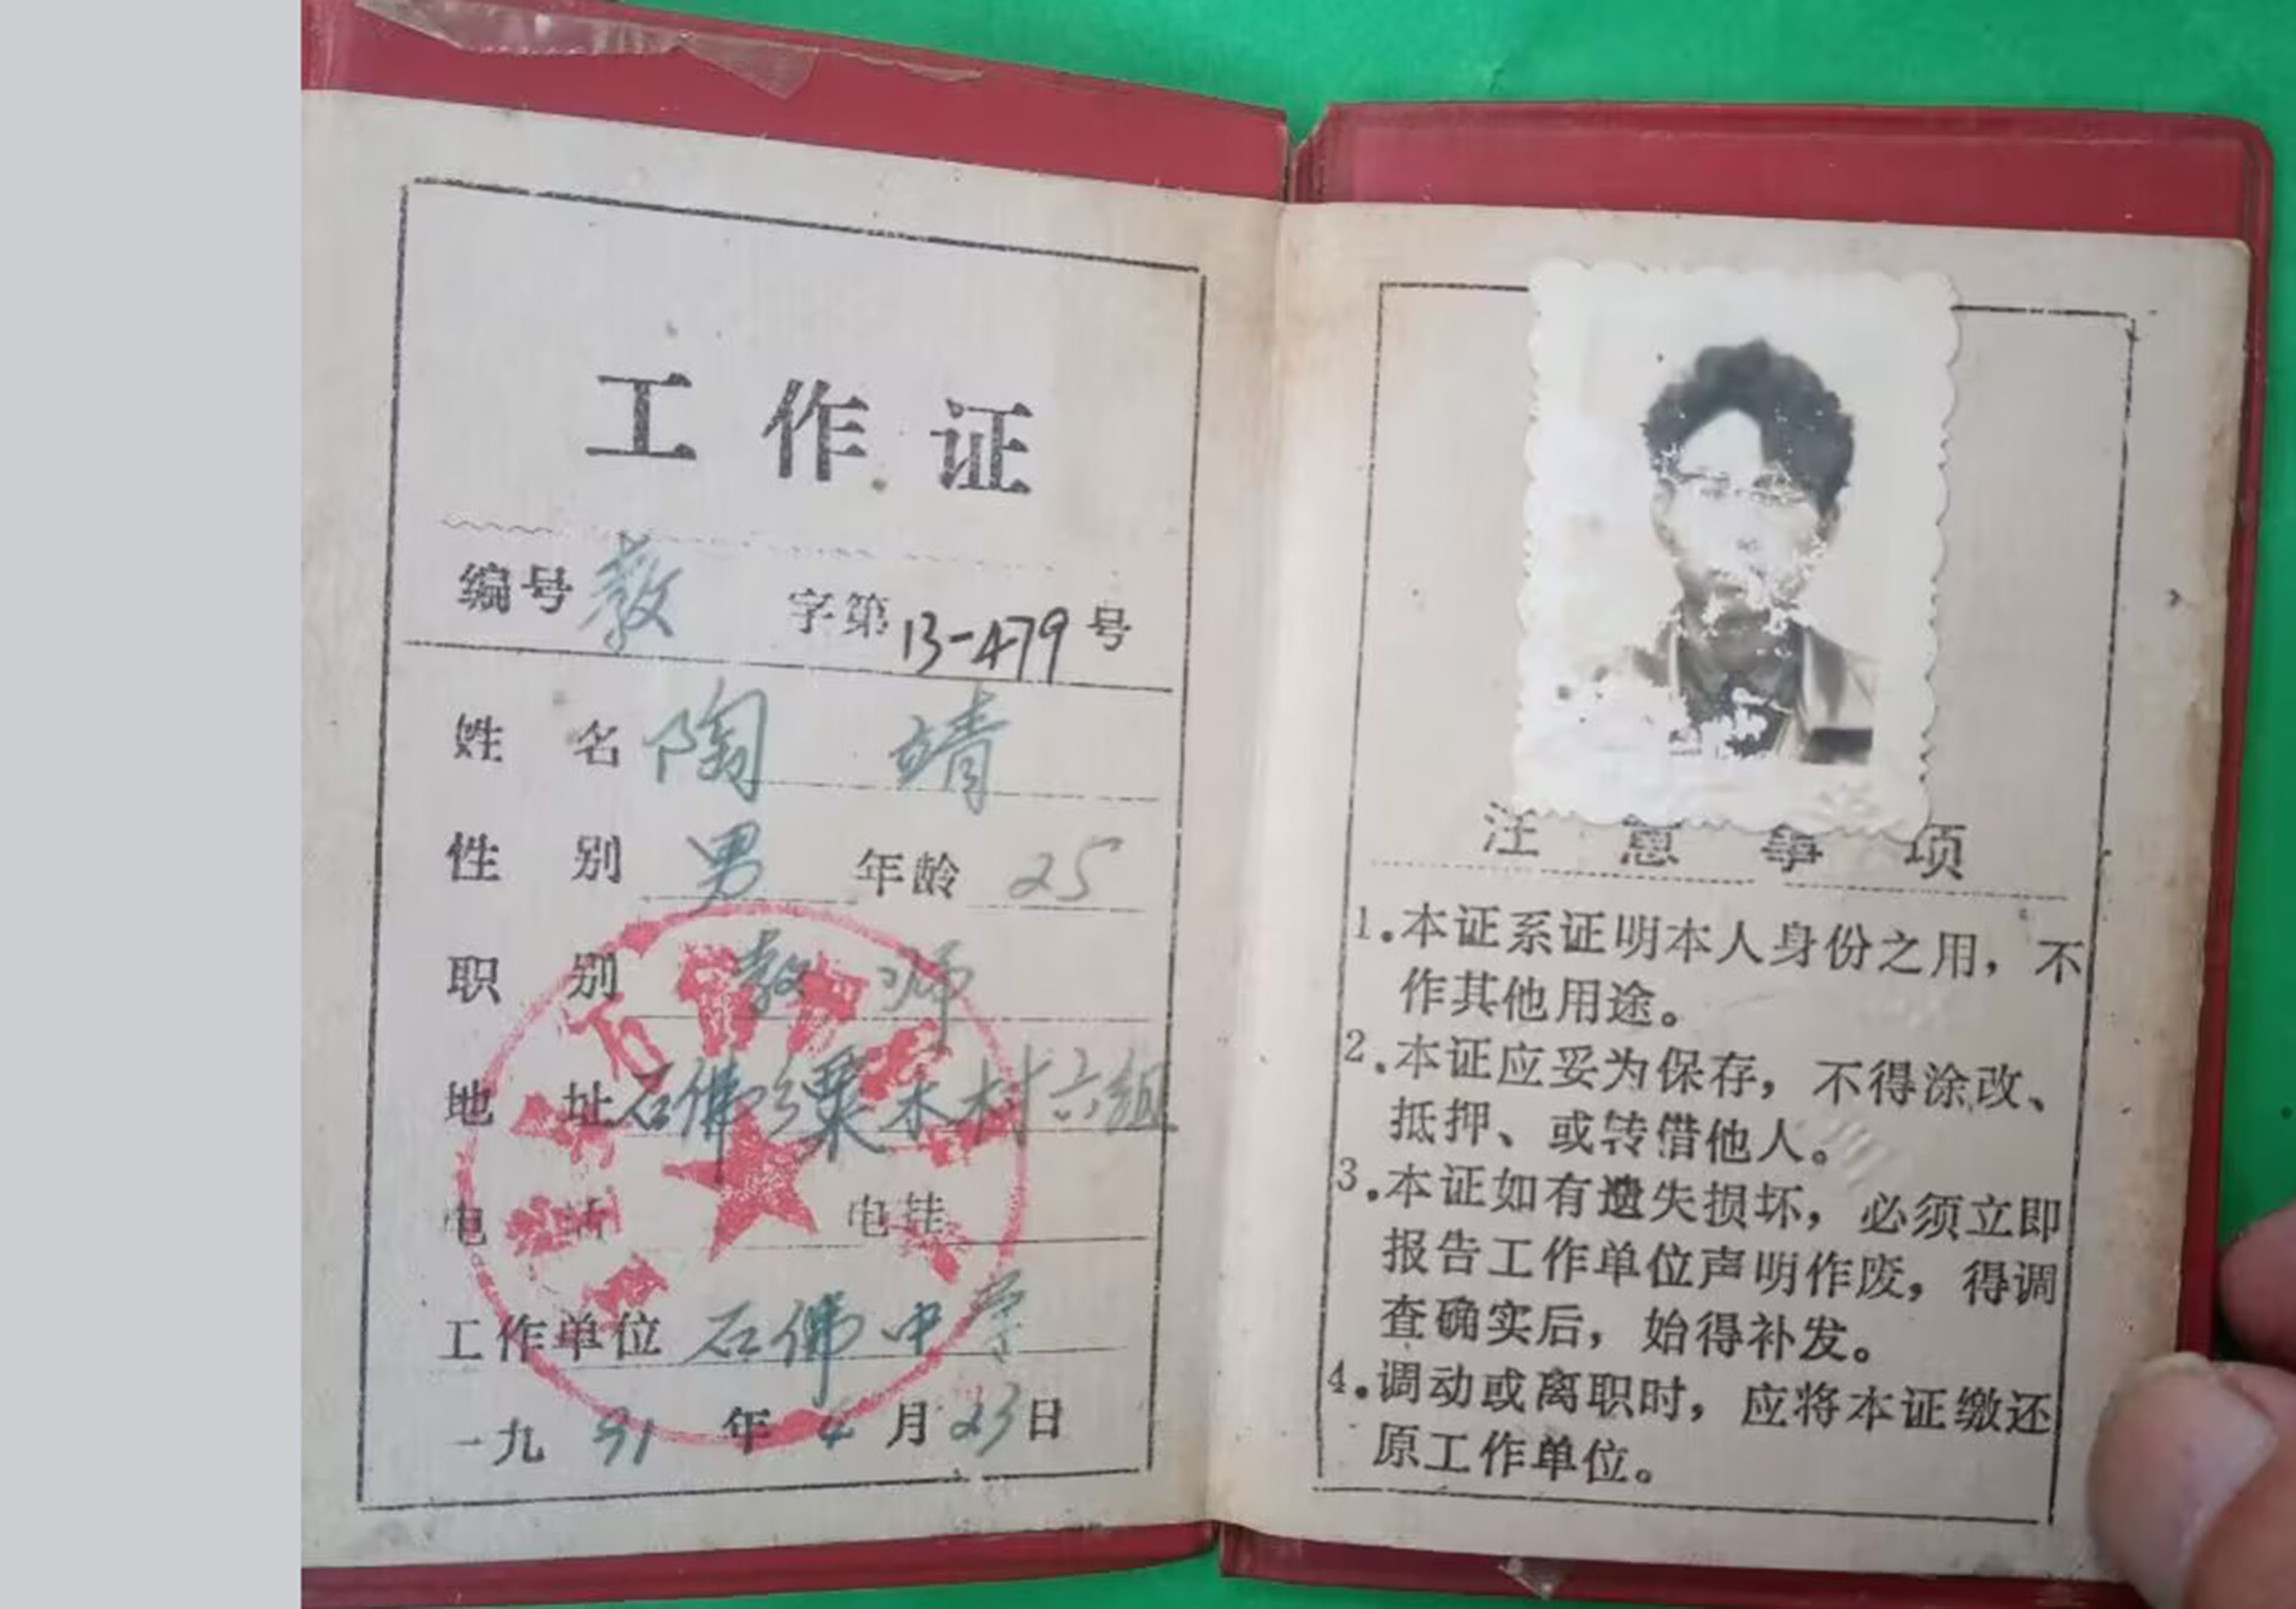 工作证
编号 教 字第 13-479 号
姓名 陶靖
性别 男 年龄 25
职别 教师
地址 石佛乡栗木村六组
电话 电挂
工作单位 石佛中学
一九91年4月23日
注意事项
1.本证系证明本人身份之用，不
作其他用途。
2.本证应妥为保存，不得涂改、
抵押、或转借他人。
3.本证如有遗失损坏，必须立即
报告工作单位声明作废，得调
查确实后，始得补发。
4.调动或离职时，应将本证缴还
原工作单位。